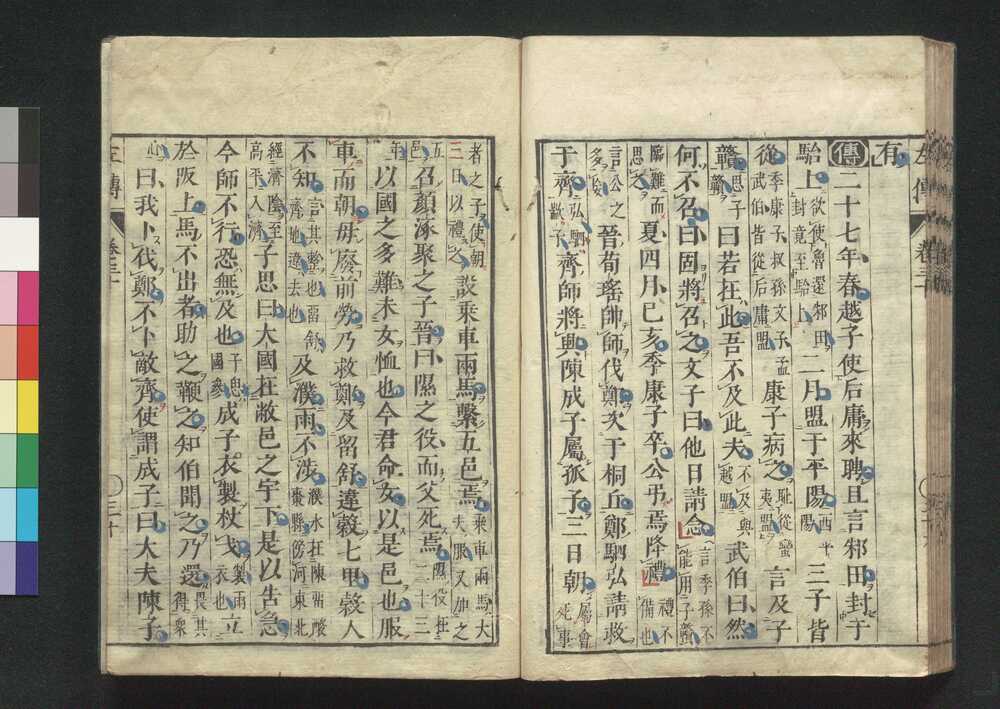 有
傳二十七年春越子使后庸來聘且言邾田封于
駘上欲使魯還邾田封竟至駘上二月盟于平陽西平陽三子皆
從季康子叔孫文子孟武伯皆從后庸盟康子病之恥從蠻夷盟言及子
贛思子贛曰若在此吾不及此夫不及與越盟武伯曰然
何不召曰固將召之文子曰他日請念言季孫不能用子贛
臨難而思之夏四月己亥季康子卒公弔焉降禮禮不備也
言公之多妄晉荀瑤帥師伐鄭次于桐丘鄭駟弘請救
于齊弘駟歂子齊師將興陳成子屬孤子三日朝屬會死事
者之子使朝三日以禮之設乘車兩馬繫五邑焉乘車兩馬大夫服又加之
五邑召顏涿聚之子晉曰隰之役而父死焉隰役在二十三
年以國之多難未女恤也今君命女以是邑也服
車而朝毋廢前勞乃救鄭及留舒違穀七里穀人
不知言其整也留舒齊地違去也及濮雨不涉濮水在陳留酸棗縣傍河東北
經濟陰至高平入濟子思曰大國在敝邑之宇下是以告急
今師不行恐無及也子思國參成子衣製杖戈製雨衣也立
於阪上馬不出者助之鞭之知伯聞之乃還畏其得衆
心曰我卜伐鄭不卜敵齊使謂成子曰大夫陳子